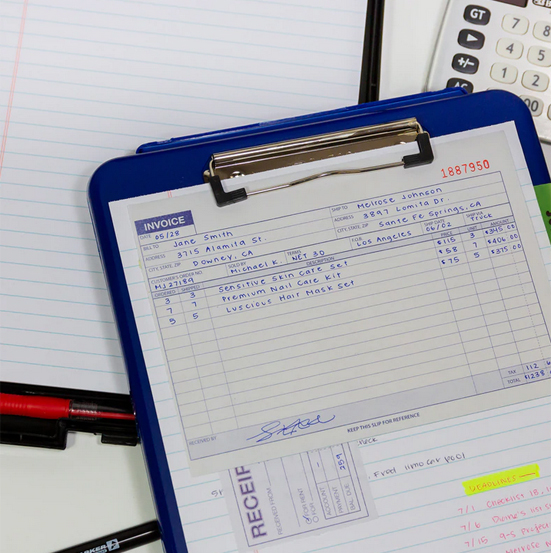 GT
7
8
4
5
+/-
1
2
00
1887950
INVOICE
DATE 05/28
SHIP TO Melrose Johnson
BILL TO Jane Smith
ADDRESS 3897 Lomita Dr
ADDRESS 3715 Alamita St.
CITY, STATE, ZIP Santa Fe Springs, CA
CITY, STATE, ZIP Downey, CA
CUSTOMER'S ORDER NO. MJ27189
SOLD BY Michael K.
TERMS NET 30
F.O.B. Los Angeles
SHIP DATE 06/02
SHIP VIA Truck
ORDERED SHIPPED DESCRIPTION PRICE UNIT AMOUNT
3 3 Sensitive Skin Care Set $115 3 $345.00
7 7 Premium Nail Care Kit $58 7 $406.00
5 5 Luscious Hair Mask Set $75 5 $375.00
TAX 112
TOTAL $1238
RECEIVED BY
KEEP THIS SLIP FOR REFERENCE
RECEIP
RECEIVED FROM
FOR RENT
FOR
ACCOUNT
PAYMENT 259
BAL. DUE
Fred limo car pool
DEADLINES
7/1 Checklist
7/6
7/15